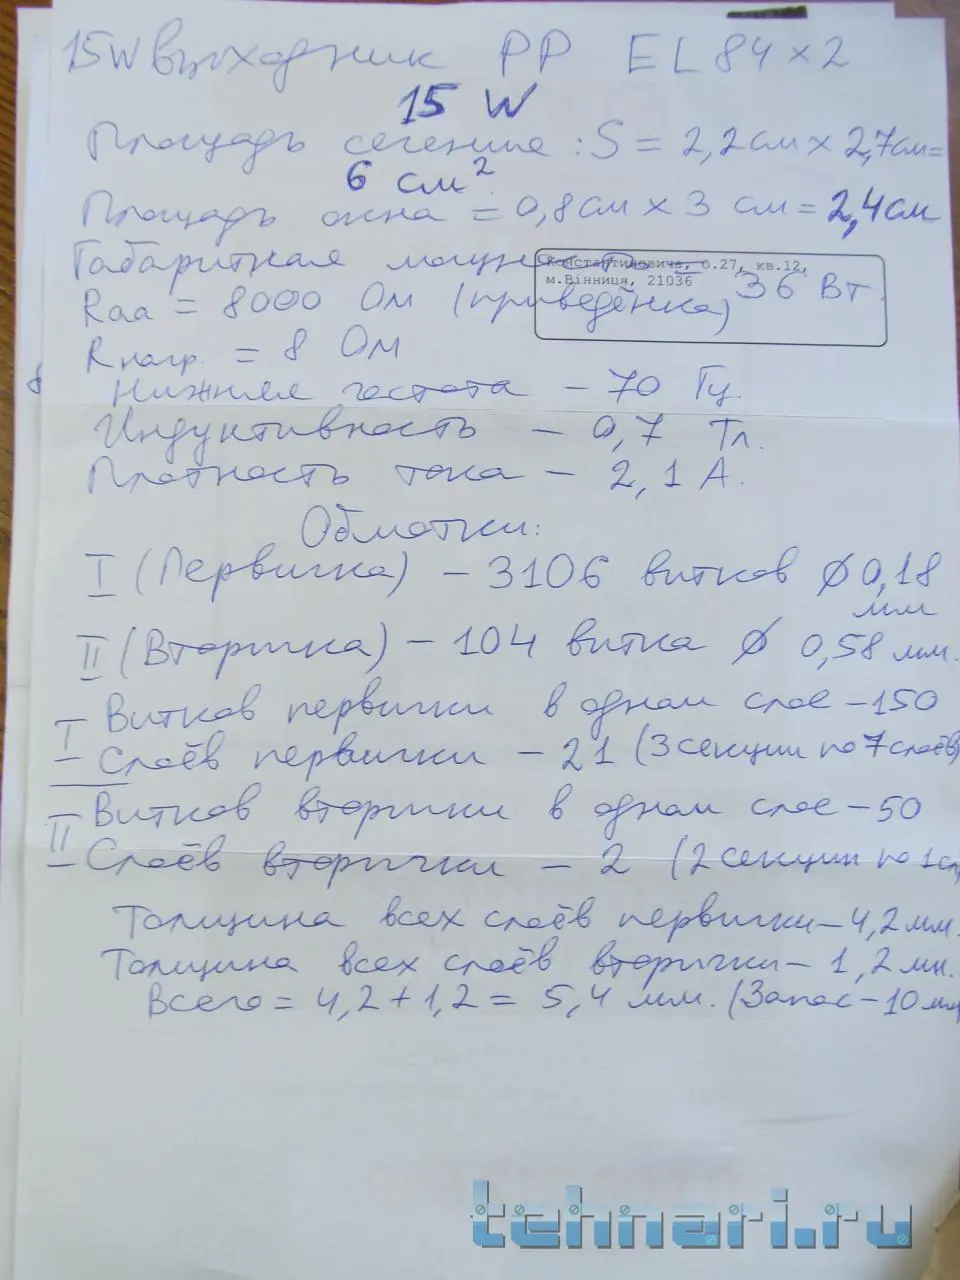 15W выходник PP EL84×2
15 W
Площадь сечение : S = 2,2см × 2,7см=
6 см²
Площадь окна = 0,8см × 3 см = 2,4см
Габаритная мощно 36 Вт.
Константиновича, б.27, кв.12,
м.Вінниця, 21036
Rаа = 8000 Ом (приведёнка)
Rнагр. = 8 Ом
Нижняя частота – 70 Гц.
Индуктивность – 0,7 Тл.
Плотность тока – 2,1 А.
Обмотки:
I (Первичка) – 3106 витков ∅ 0,18
мм
II (Вторичка) – 104 витка ∅ 0,58 мм.
I Витков первички в одном слое – 150
Слоёв первички – 21 (3 секции по 7 слоёв)
II Витков вторички в одном слое – 50
Слоёв вторички – 2 (2 секции по 1 сл
Толщина всех слоёв первички – 4,2 мм.
Толщина всех слоёв вторички – 1,2 мм.
Всего = 4,2 + 1,2 = 5,4 мм. (Запас – 10 мм
tehnari.ru